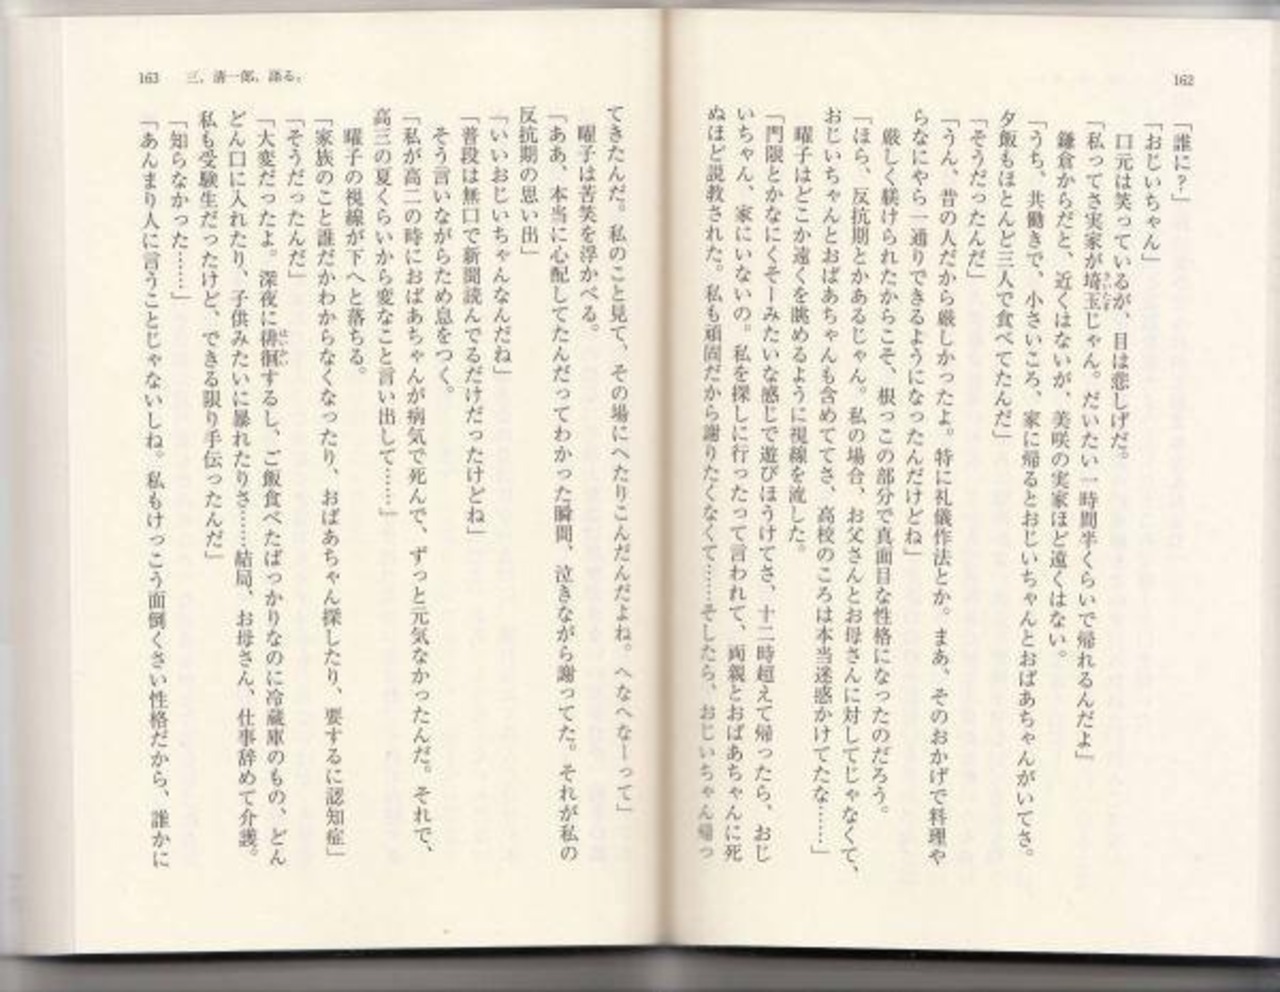 162
「誰に？」
「おじいちゃん」
口元は笑っているが、目は悲しげだ。
「私ってさ実家が埼玉じゃん。だいたい一時間半くらいで帰れるんだよ」
鎌倉からだと、近くはないが、美咲の実家ほど遠くはない。
「うち、共働きで、小さいころ、家に帰るとおじいちゃんとおばあちゃんがいてさ。
夕飯もほとんど三人で食べてたんだ」
「そうだったんだ」
「うん、昔の人だから厳しかったよ。特に礼儀作法とか。まあ、そのおかげで料理や
らなにやら一通りできるようになったんだけどね」
厳しく躾けられたからこそ、根っこの部分で真面目な性格になったのだろう。
「ほら、反抗期とかあるじゃん。私の場合、お父さんとお母さんに対してじゃなくて、
おじいちゃんとおばあちゃんも含めててさ、高校のころは本当迷惑かけてたな……」
曜子はどこか遠くを眺めるように視線を流した。
「門限とかなにくそーみたいな感じで遊びほうけてさ、十二時超えて帰ったら、おじ
いちゃん、家にいないの。私を探しに行ったって言われて、両親とおばあちゃんに死
ぬほど説教された。私も頑固だから謝りたくなくて……そしたら、おじいちゃん帰っ
163 三、清一郎、語る。
てきたんだ。私のこと見て、その場にへたりこんだんだよね。へなへなーって」
曜子は苦笑を浮かべる。
「ああ、本当に心配してたんだってわかった瞬間、泣きながら謝ってた。それが私の
反抗期の思い出」
「いいおじいちゃんなんだね」
「普段は無口で新聞読んでるだけだったけどね」
そう言いながらため息をつく。
「私が高二の時におばあちゃんが病気で死んで、ずっと元気なかったんだ。それで、
高三の夏くらいから変なこと言い出して……」
曜子の視線が下へと落ちる。
「家族のこと誰だかわからなくなったり、おばあちゃん探したり、要するに認知症」
「そうだったんだ」
「大変だったよ。深夜に徘徊するし、ご飯食べたばっかりなのに冷蔵庫のもの、どん
どん口に入れたり、子供みたいに暴れたりさ……結局、お母さん、仕事辞めて介護。
私も受験生だったけど、できる限り手伝ったんだ」
「知らなかった……」
「あんまり人に言うことじゃないしね。私もけっこう面倒くさい性格だから、誰かに